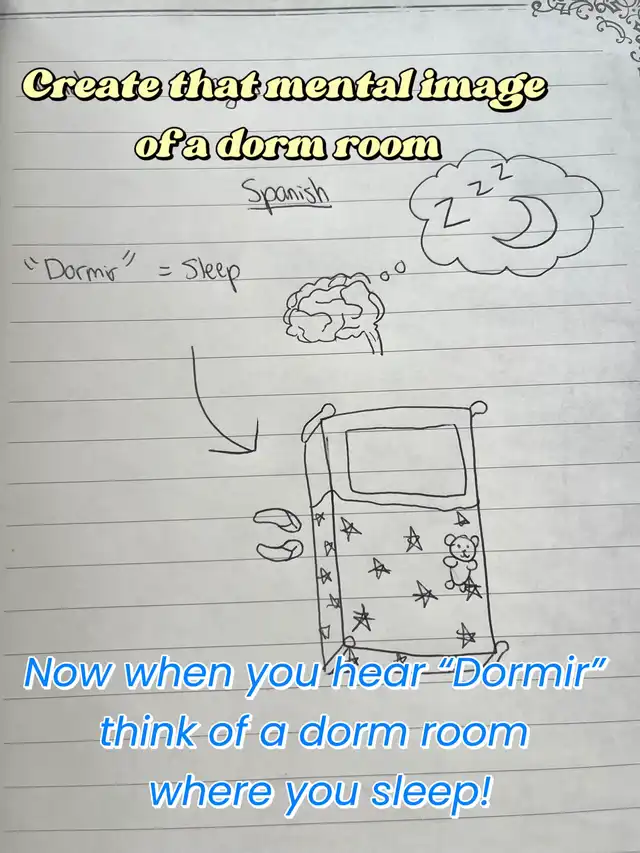 Create that mental image
of a dorm room
Spanish
Z z z
"Dormir" = Sleep
Now when you hear “Dormir”
think of a dorm room
where you sleep!